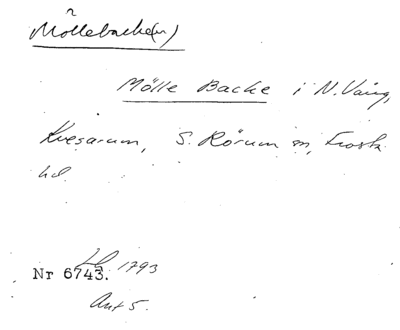 Möllebacke(n)
Mölle Backe i N. Vång,
Kvesarum, S. Rörum sn, Frosta
hd.
Nr 6743. 1793
Akt 5.